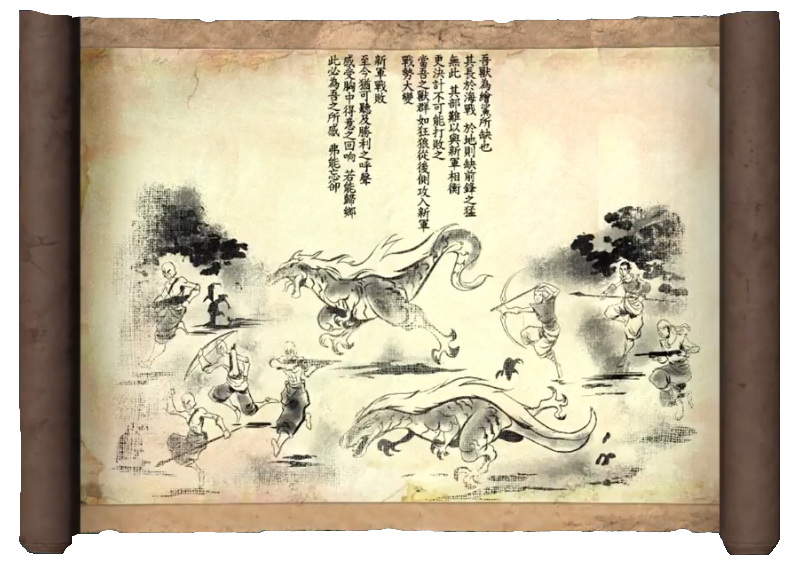 吾獸為繪鯊所缺也
其長於海戰 於地則缺前鋒之猛
無此 其部難以與新軍相衡
更決計不可能打敗之
當吾之獸群如狂狼從後側攻入新軍
戰勢大變
新軍戰敗
至今猶可聽及勝利之呼聲
感受胸中得意之回响 若能歸鄉
此必為吾之所感 弗能忘卻